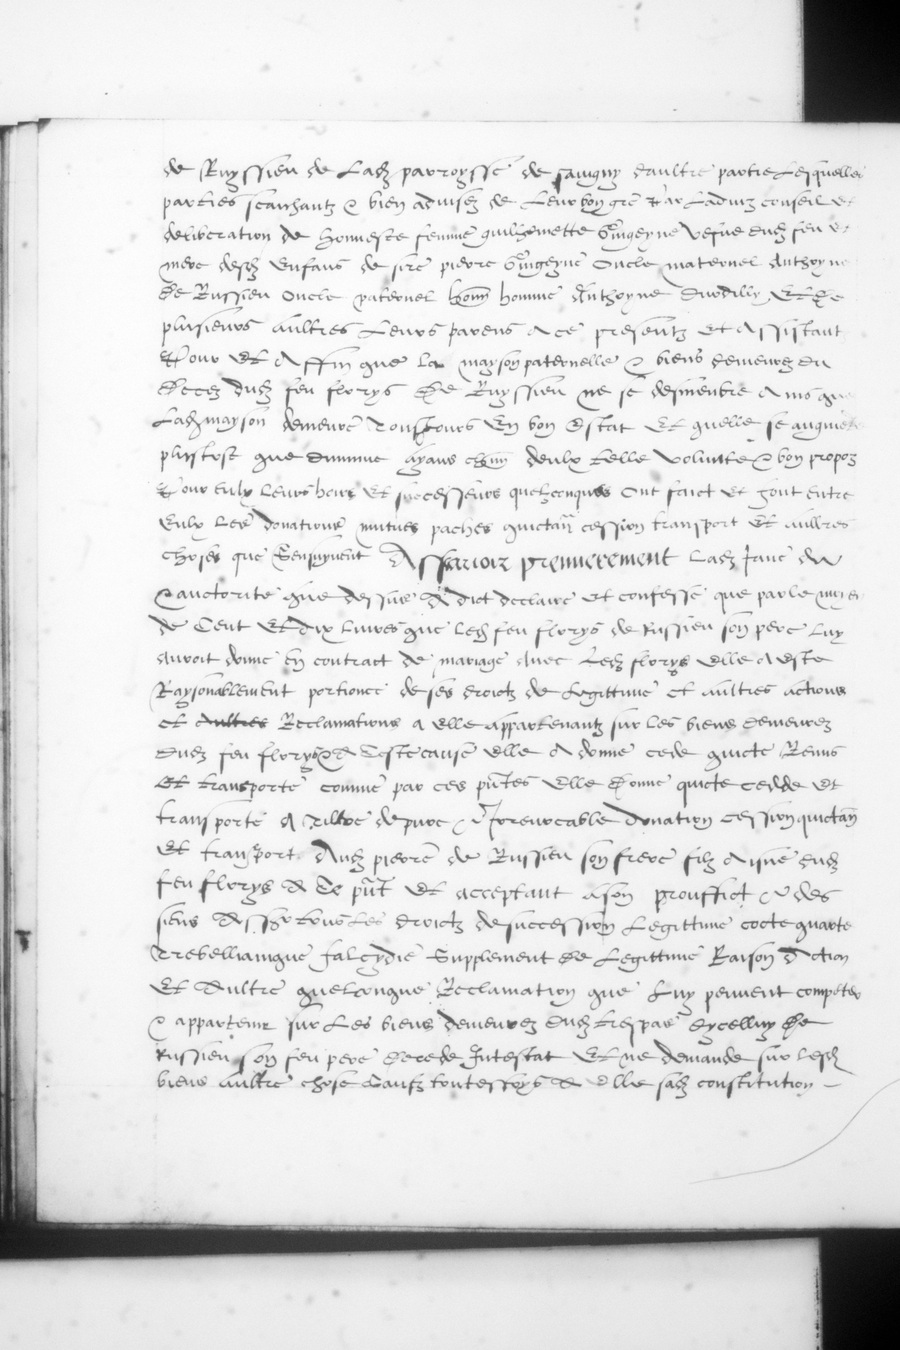 de Ruyssieu de Ladz parroysse de savigny daultre partie Lesquelles
parties scaichantz & bien advisez de Leur bon gre & par Ladviz conseil et
deliberation de honneste femme guillemette vefue dudz feu et
mere desdz enfans de sire pierre Oncle maternel Anthoyne
De Russieu Oncle paternel homme Anthoyne Durdilly Et De
plusieurs aultres Leurs parens a ce presentz et Assistant
Pour Et Affin que La mayson paternelle & biens demeurez du
Decez dudz feu florys De Ruyssieu ne se desmenbre Ains que
Ladz mayson demeure Tousjours En bon Estat Et quelle se augmente
plustost que diminue ayans chun deulx telle volunte & bon propoz
Pour eulx Leurs hoirs Et successeurs quelzconques Ont faict et font entre
Eulx Les donations mutues paches quictan cession transport Et aultres
choses que Sensuyvent Assavoir premierement Ladz Jane de
& auctorite que dessus A dict declaire et confesse que parle moyen
de Cent Et dix Livres que Ledz feu florys de Russieu son pere Luy
Auroit donne En contract de mariage Avec Ledz florys elle A este
Raysonablement portionee de ses droictz de Legittime et aultres actions
et aultres Reclamations a elle appartenantz sur Les biens demeurez
dudz feu florys & A Ceste cause elle A donne cede quicte Remis
Et transporte comme par ces pntes Elle Donne quicte cedde et
transporte A Tiltre de pure & Irrevocable donation cession quictan
Et transport Audz pierre de Russieu son frere filz Aisne dudz
feu florys A Ce pnt Et acceptant a son prouffict & des
siens Assr tous Les droictz de succession Legittime cocte quarte
Trebellianique falcydie Supplement De Legittime Raison Action
Et Aultre quelconque Reclamation que Luy peuvent competer
& appartenir sur Les biens demeurez dudz trespas dycelluy De
Russieu son feu pere decede Intestat Et ne demande sur lesdz
biens aultre chose Saufz toutesfoys A elle sadz constitution